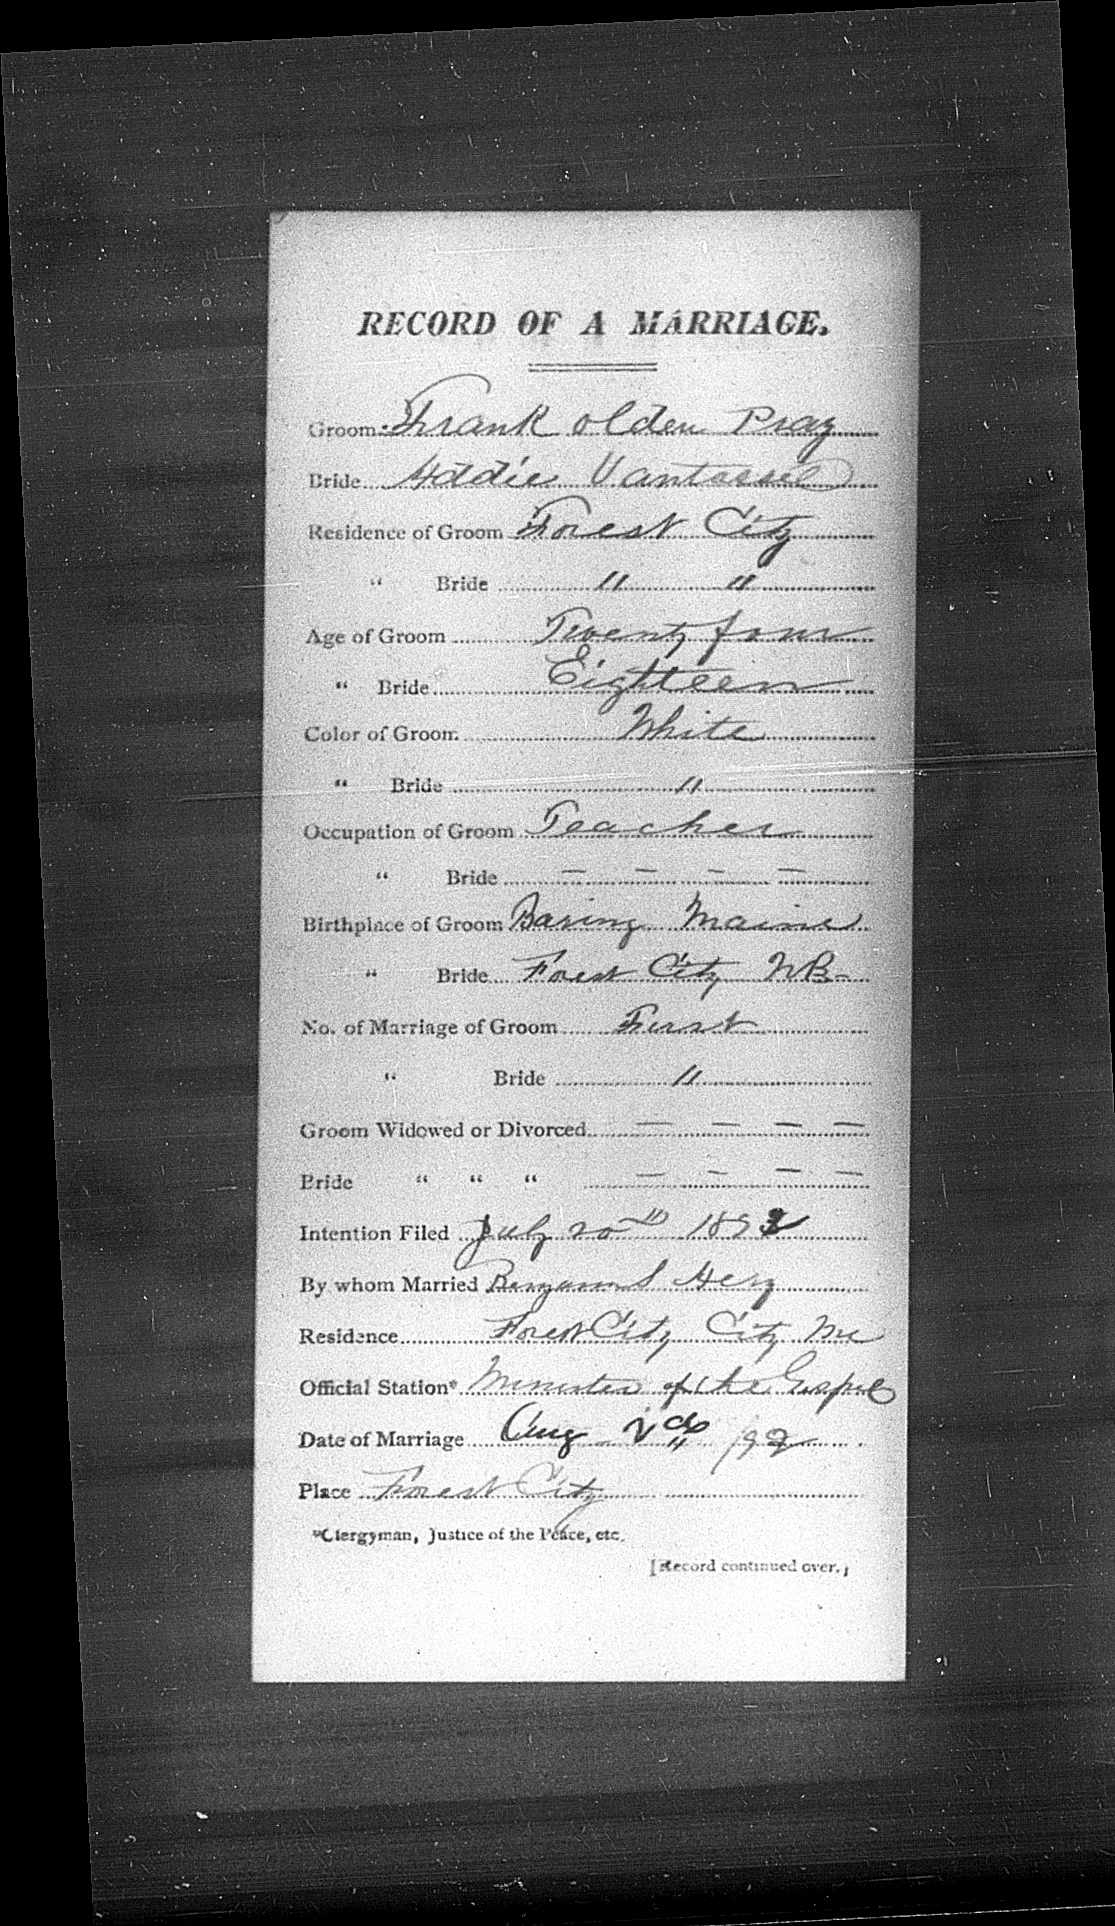 RECORD OF A MARRIAGE.
Groom Frank Olden Pray
Bride Addie Vantassel
Residence of Groom Forest City
" Bride " "
Age of Groom Twenty four
" Bride Eighteen
Color of Groom White
" Bride "
Occupation of Groom Teacher
" Bride — — — —
Birthplace of Groom Baring Maine
" Bride Forest City NB-
No. of Marriage of Groom First
" Bride "
Groom Widowed or Divorced — — — —
Bride " " " — — — —
Intention Filed July 20th
By whom Married
Residence Forest City City Me
Official Station* Minister of the Gospel
Date of Marriage Aug
Place Forest City
*Clergyman, Justice of the Peace, etc.
[Record continued over.]